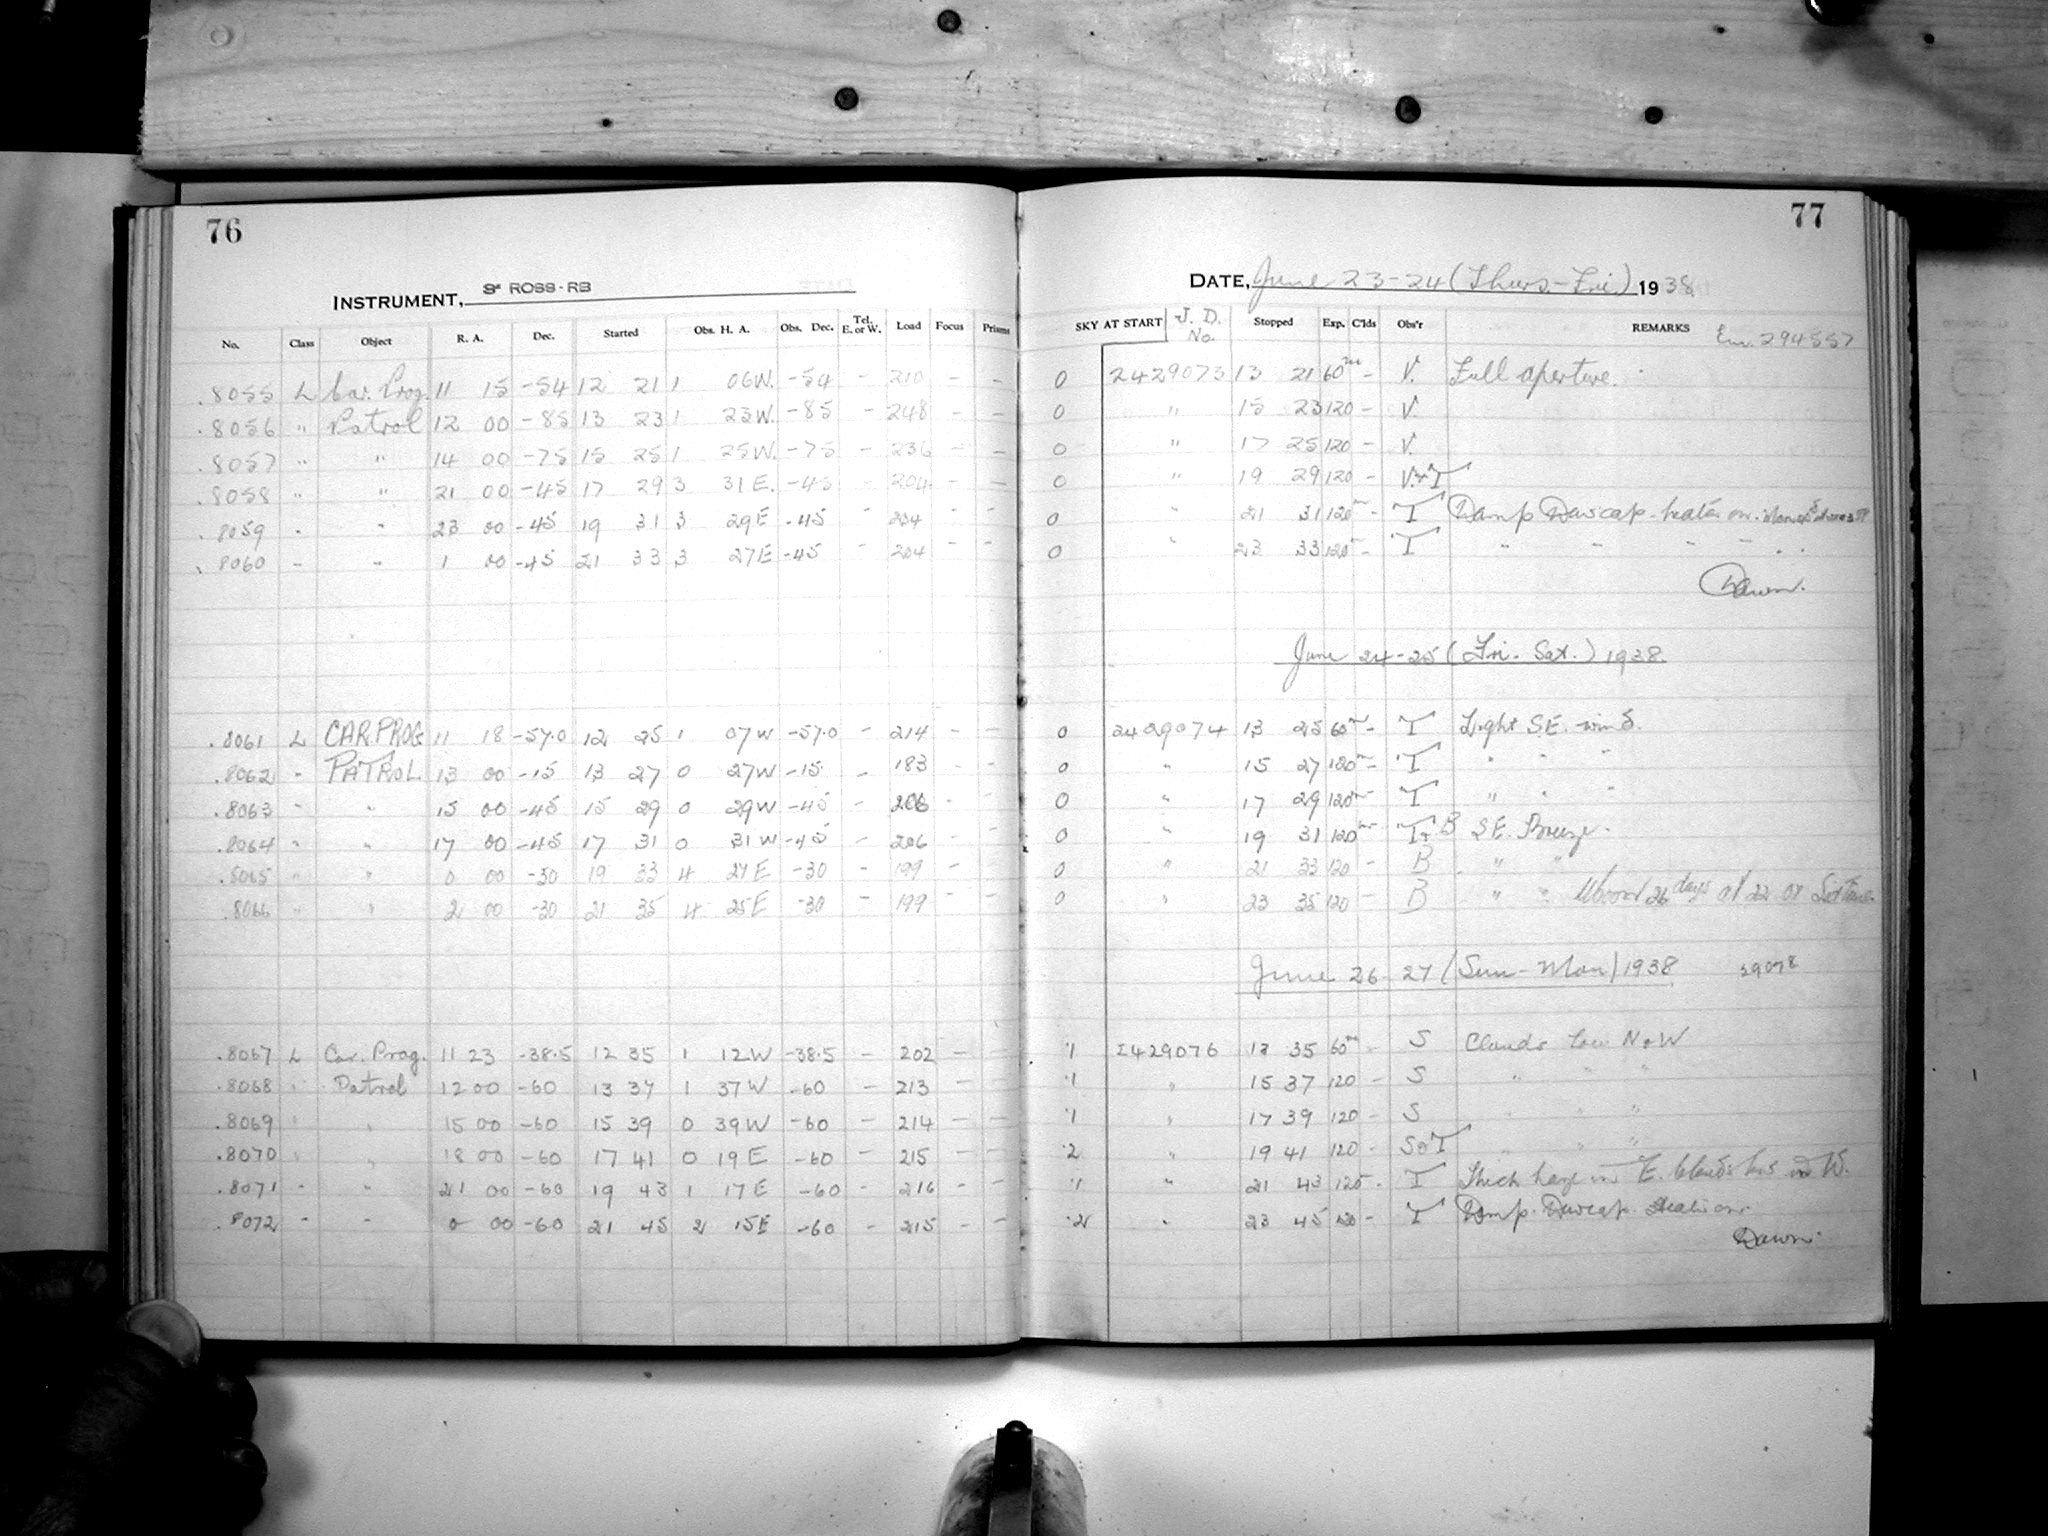 76
INSTRUMENT, 3" ROSS-RB
No. Class Object R. A. Dec. Started Obs. H. A. Obs. Dec. Tel. E. or W. Load Focus Prisms
.8055 L Car. Prog. 11 15 -54 12 21 1 06W. -54 - 210 - -
.8056 " Patrol 12 00 -85 13 23 1 23W. -85 - 248 - -
.8057 " " 14 00 -75 15 25 1 25W. -75 - 236 - -
.8058 " " 21 00 -45 17 29 3 31E. -45 - 204 - -
.8059 " " 23 00 -45 19 31 3 29E -45 - 204 - -
.8060 " " 1 00 -45 21 33 3 27E -45 - 204 - -
.8061 L CAR.PROG. 11 18 -57.0 12 25 1 07W -57.0 - 214 - -
.8062 " PATROL 13 00 -15 13 27 0 27W -15 - 183 - -
.8063 " " 15 00 -45 15 29 0 29W -45 - 206 - -
.8064 " " 17 00 -45 17 31 0 31W -45 - 206 - -
.8065 " " 0 00 -30 19 33 4 27E -30 - 199 - -
.8066 " " 2 00 -30 21 35 4 25E -30 - 199 - -
.8067 L Car. Prog. 11 23 -38.5 12 35 1 12W -38.5 - 202 - -
.8068 " Patrol 12 00 -60 13 37 1 37W -60 - 213 - -
.8069 " " 15 00 -60 15 39 0 39W -60 - 214 - -
.8070 " " 18 00 -60 17 41 0 19E -60 - 215 - -
.8071 " " 21 00 -60 19 43 1 17E -60 - 216 - -
.8072 " " 0 00 -60 21 45 2 15E -60 - 215 - -
77
DATE, June 23-24 (Thurs-Fri) 1938
SKY AT START J. D. No. Stopped Exp. C'lds Obs'r REMARKS Em. 294557
0 2429073 13 21 60m - V. Full aperture.
0 " 15 23 120 - V.
0 " 17 25 120 - V.
0 " 19 29 120 - V.+T
0 " 21 31 120m - T Damp Dewcap heater on.
0 " 23 33 120m - T " " " "
Dawn.
June 24-25 (Fri-Sat.) 1938.
0 2429074 13 25 60m - T Light S.E. wind.
0 " 15 27 120m - T " "
0 " 17 29 120m - T " " "
0 " 19 31 120m - T+B S.E. Breeze.
0 " 21 33 120 - B " "
0 " 23 35 120 - B " " Moon 26 days at 22 01 Sid Time.
June 26-27 (Sun-Mon) 1938 29078
.1 2429076 13 35 60m - S Clouds low N&W
.1 " 15 37 120 - S " " "
.1 " 17 39 120 - S " " "
.2 " 19 41 120 - S&T " " "
.1 " 21 43 120 - T Thick haze in E. Clouds low in W.
.2 " 23 45 120 - T Damp. Dewcap Heater on.
Dawn.